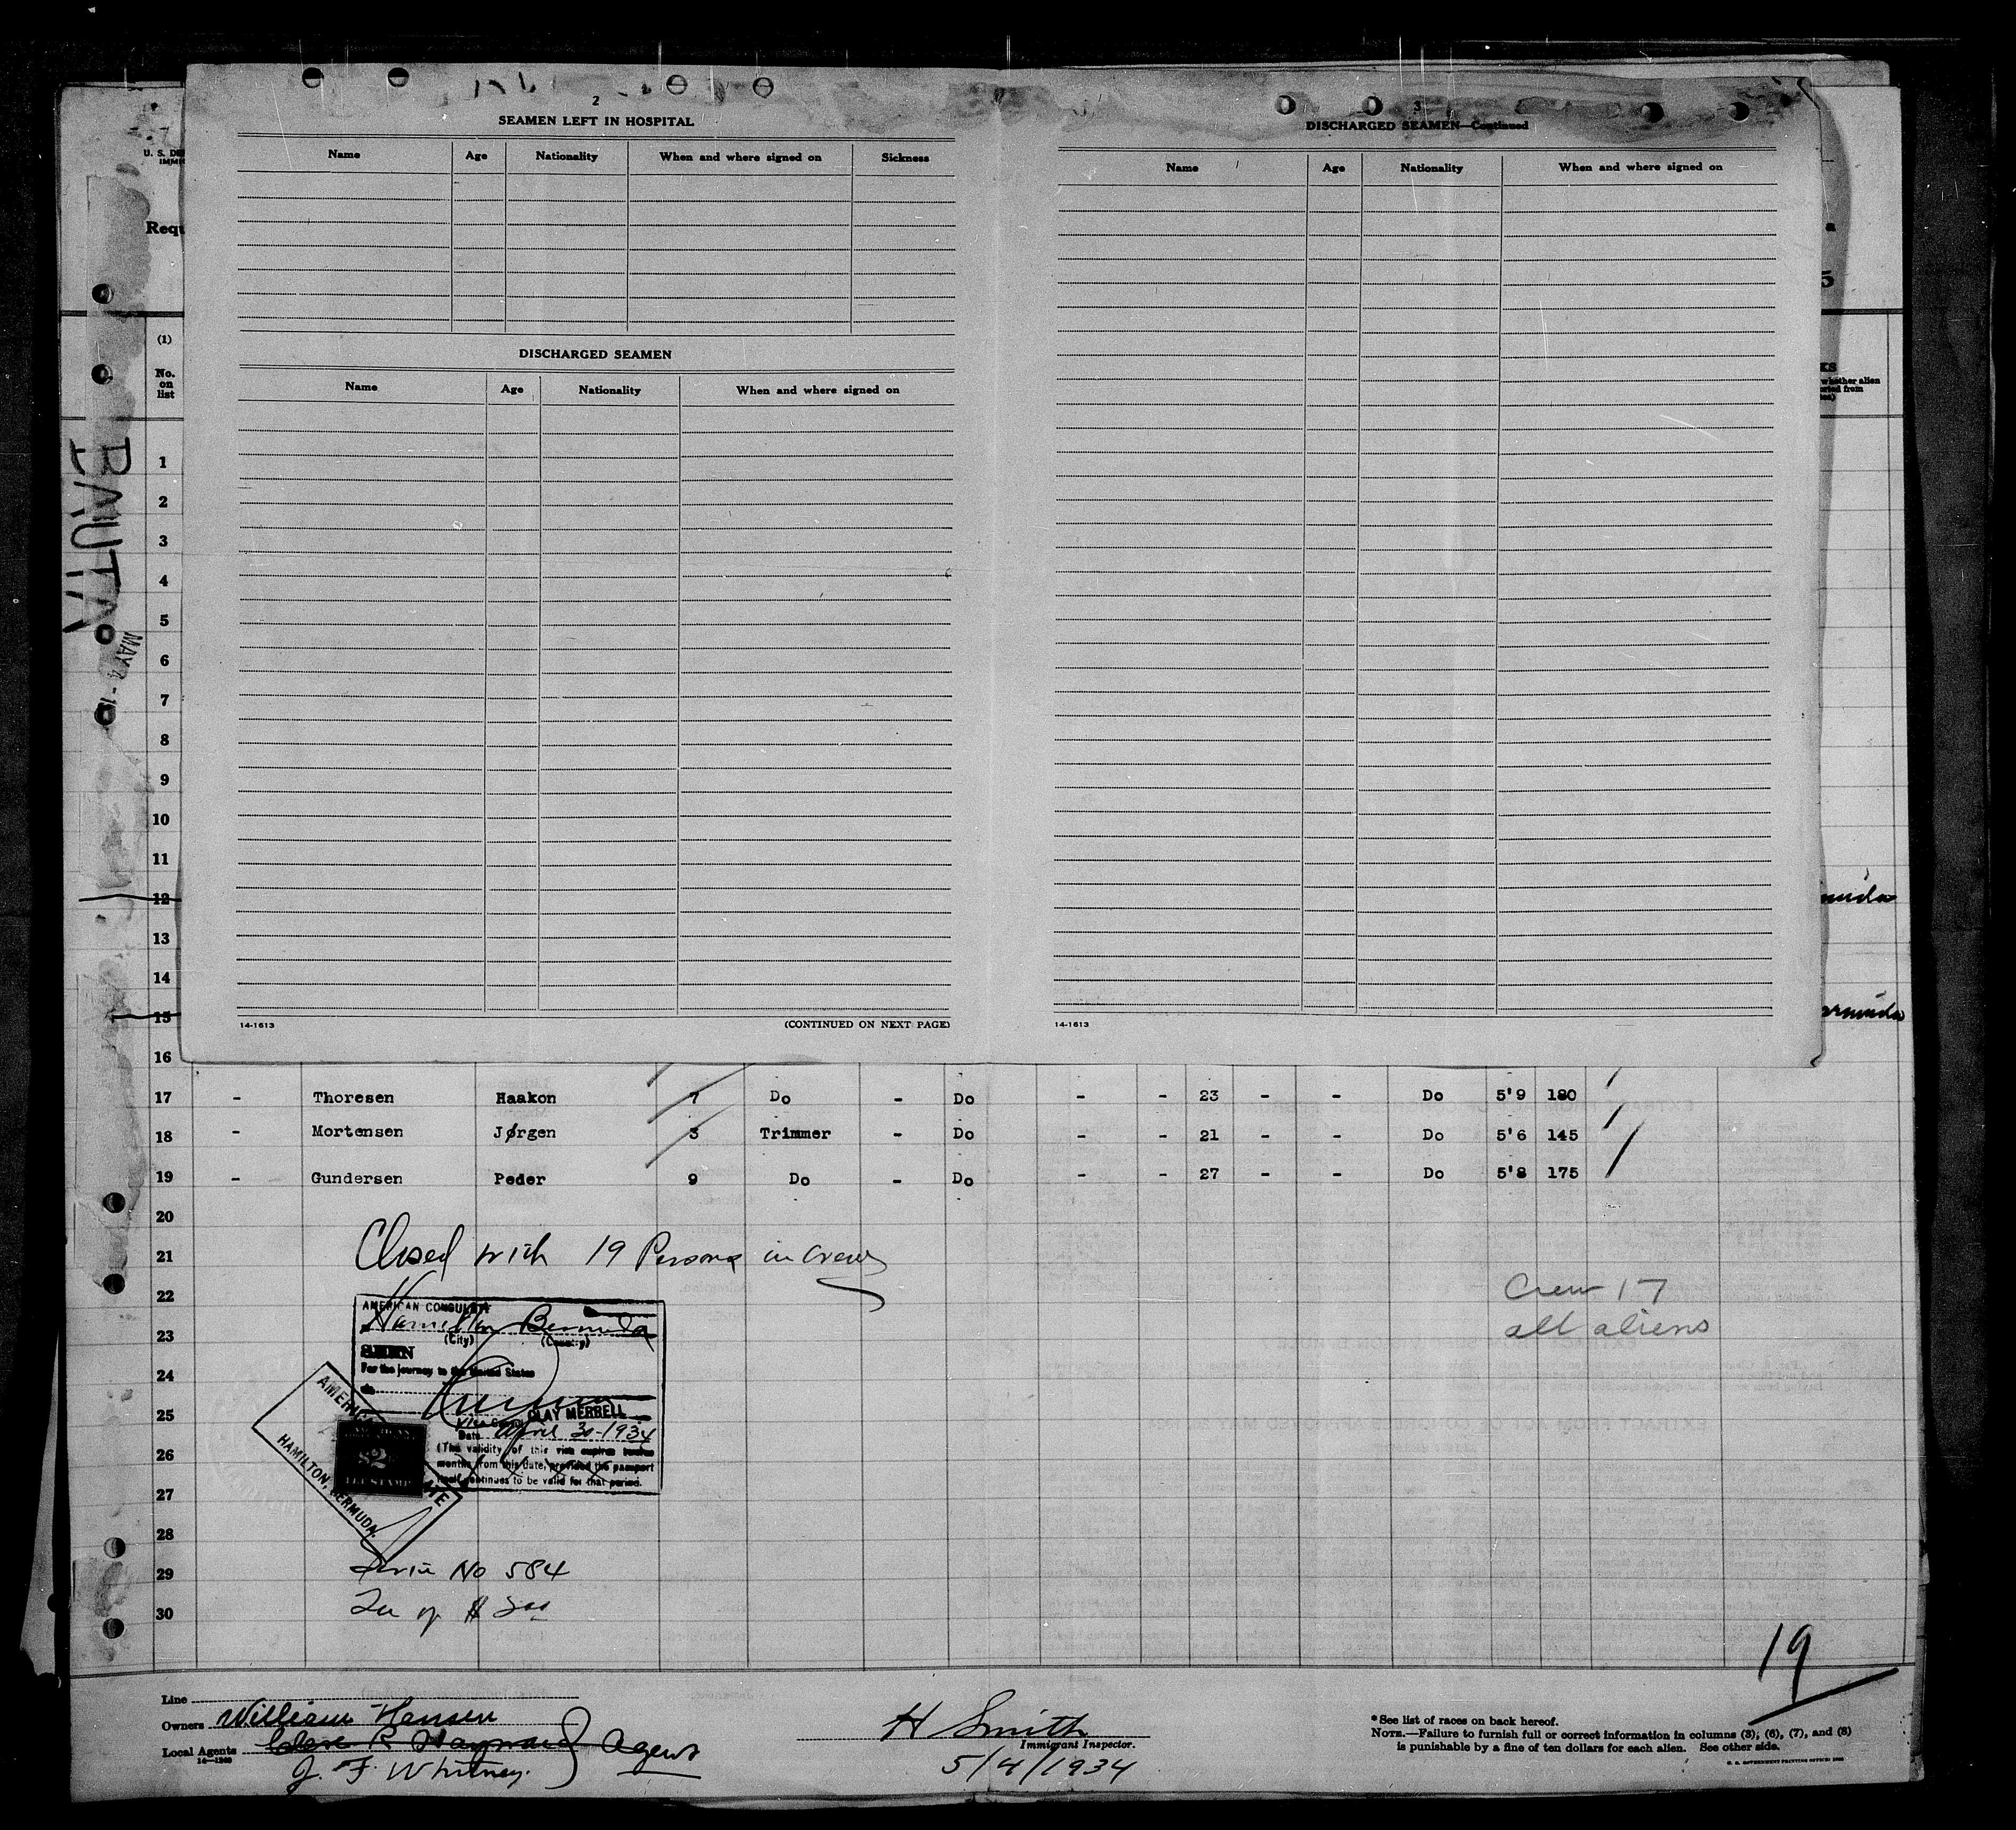 2
SEAMEN LEFT IN HOSPITAL
Name Age Nationality When and where signed on Sickness
DISCHARGED SEAMEN
Name Age Nationality When and where signed on
14-1613 (CONTINUED ON NEXT PAGE)
3
DISCHARGED SEAMEN—Continued
Name Age Nationality When and where signed on
14-1613
U. S. DE
IMMI
Requ
5
(1)
No.
on
list
KS
whether alien
orted from
tes)
BAUTA
MAY 4 - 1
1
2
3
4
5
6
7
8
9
10
11
12 muda
13
14
15 ermuda
16
17 - Thoresen Haakon 7 Do - Do - - 23 - - Do 5'9 180
18 - Mortensen Jørgen 3 Trimmer - Do - - 21 - - Do 5'6 145
19 - Gundersen Peder 9 Do - Do - - 27 - - Do 5'8 175
20
21 Closed with 19 Persons in crew
22
23
24
25
26
27
28
29
30
Crew 17
all aliens
AMERICAN CONSULATE
Hamilton Bermuda
(City) (Country)
SEEN
For the journey to the United States
via
Vice Consul CLAY MERRELL
Date April 30-1934
(The validity of this visa expires twelve
months from this date, provided the passport
itself continues to be valid for that period.
AMERIC ATE
HAMILTON, BERMUDA.
$2
FEE STAMP
Service No 584
Fee of $
19
Line
Owners William Hansen
Local Agents Clare R Hayward Agents
14-1240
J. F. Whitney.
H Smith
Immigrant Inspector.
5/4/1934
*See list of races on back hereof.
NOTE.—Failure to furnish full or correct information in columns (3), (6), (7), and (8)
is punishable by a fine of ten dollars for each alien. See other side.
U. S. GOVERNMENT PRINTING OFFICE: